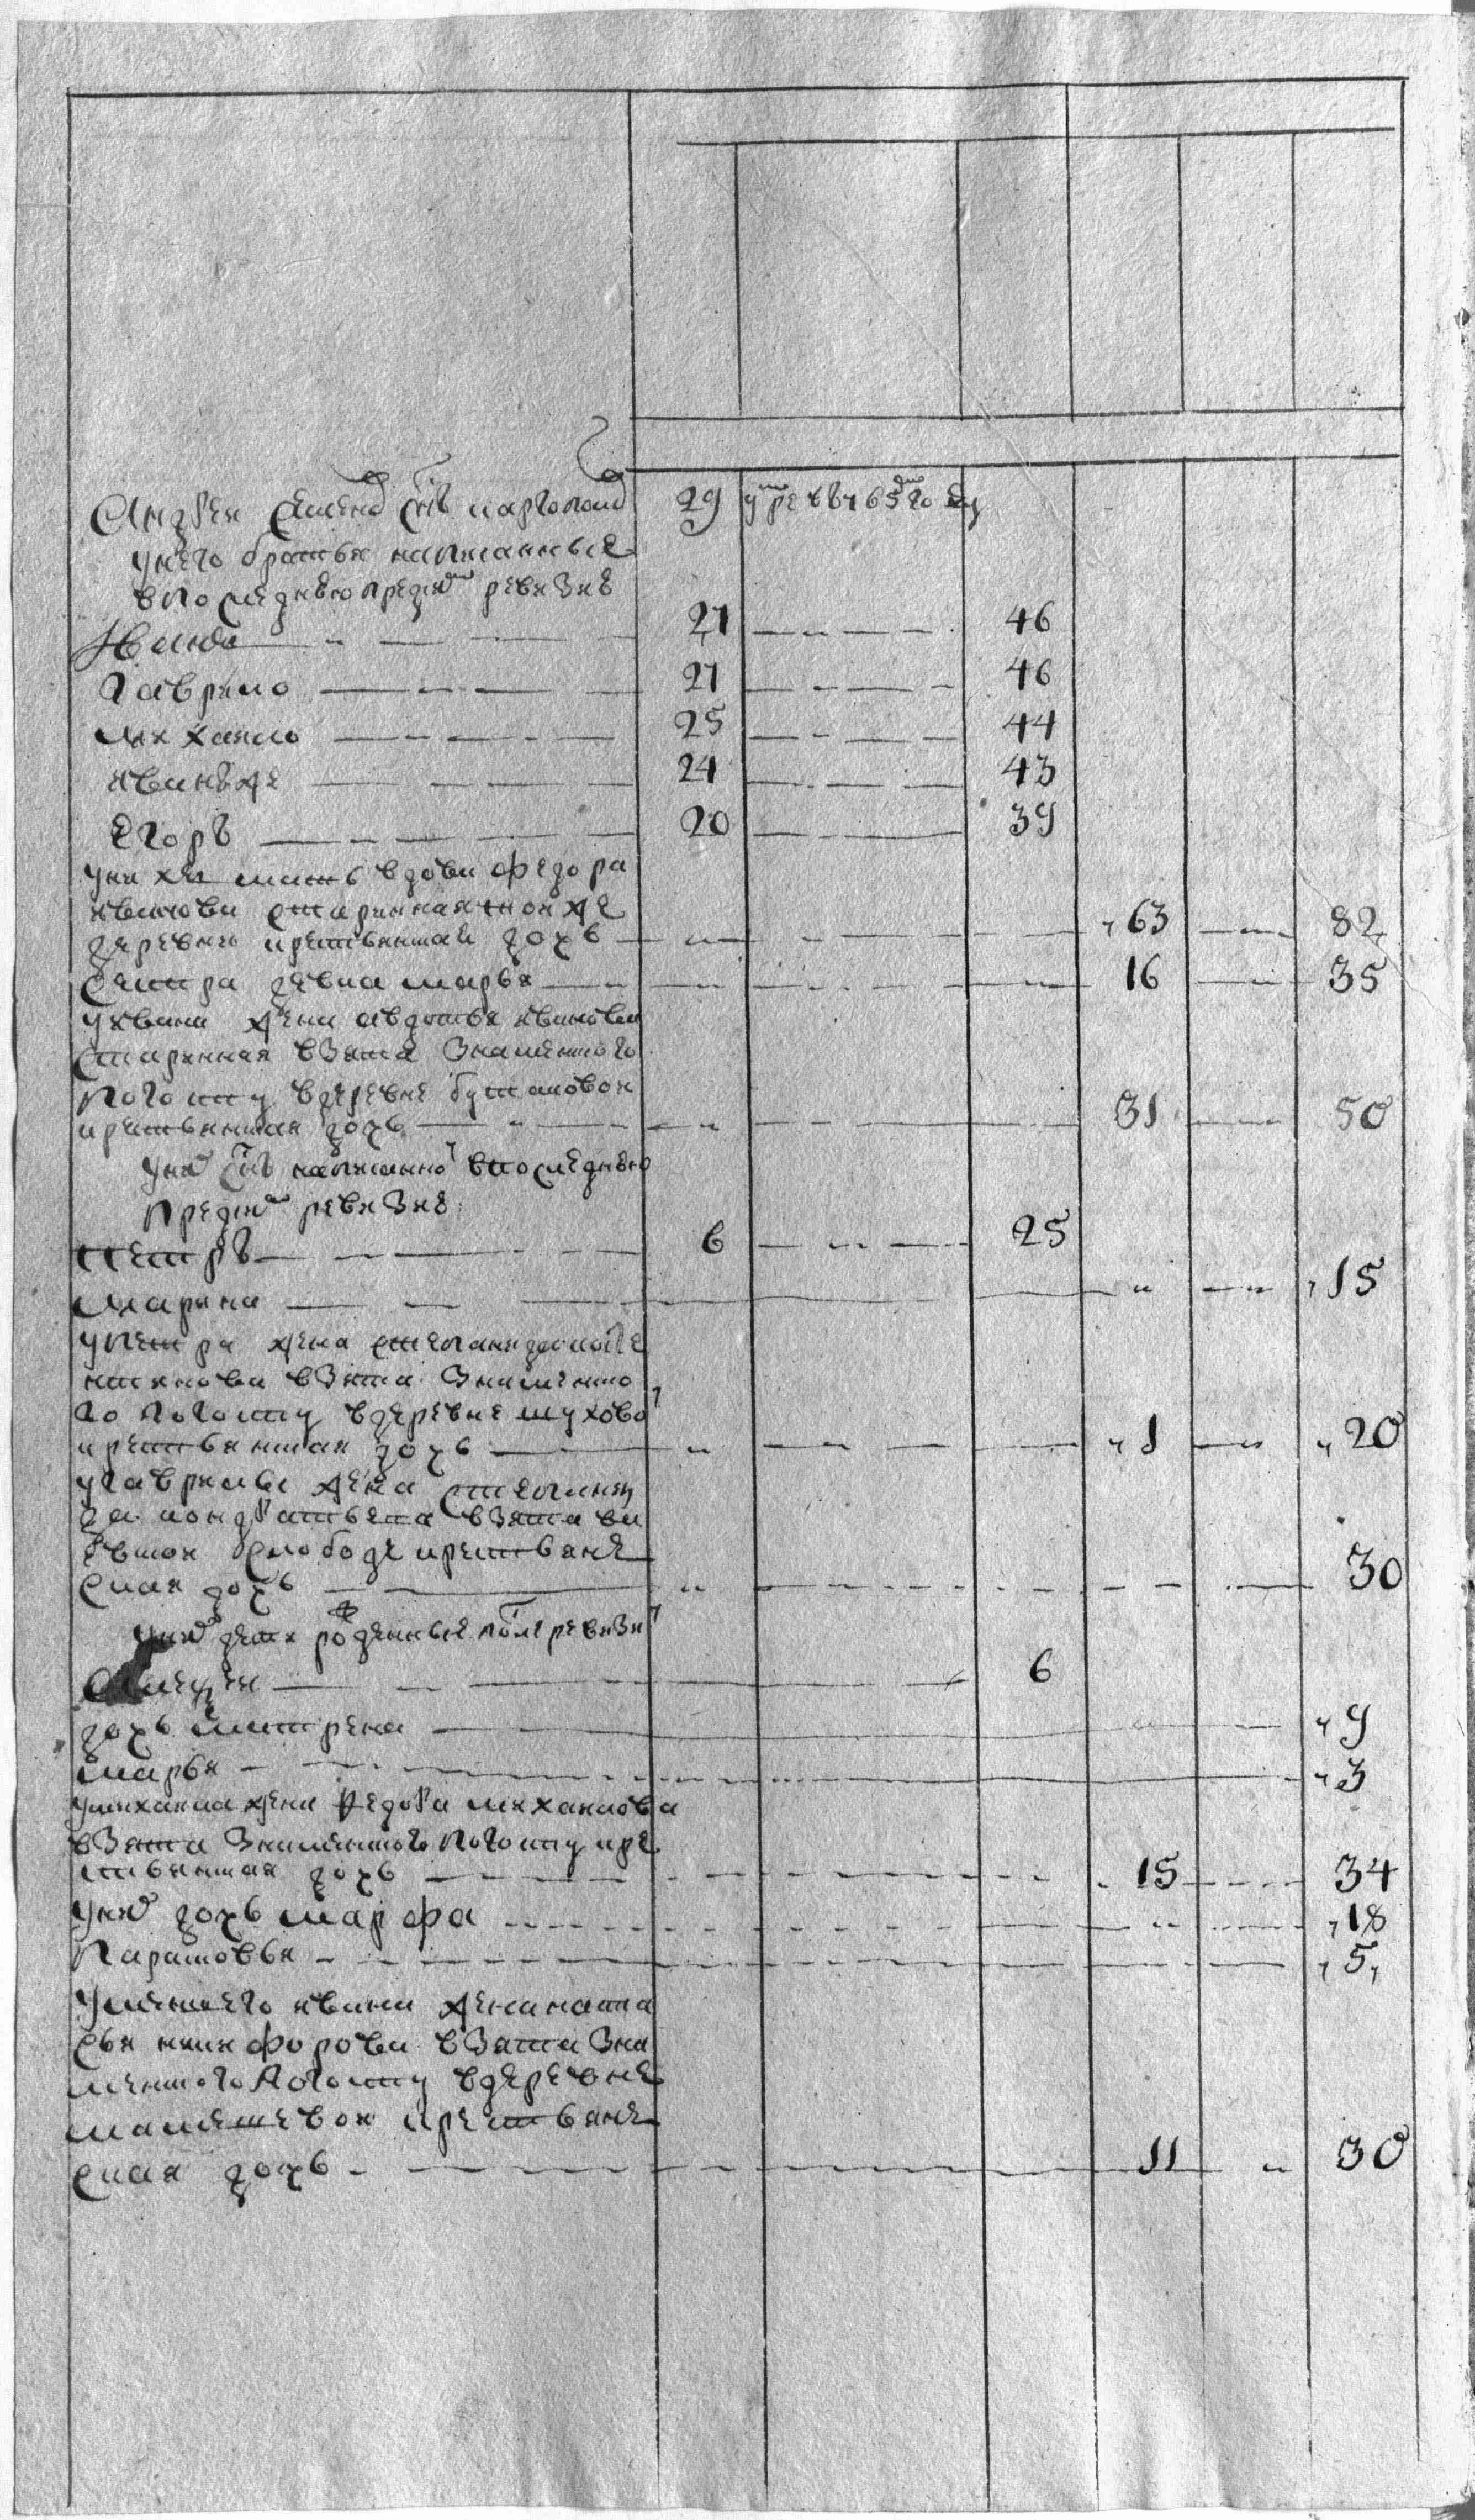 Андреи Семенов снъ 29 умре въ 765 году
у него братья написанные
в последнею пред сим ревизиѣ
Иванъ 27 46
Гаврило 27 46
Михаило 25 44
Иван же 24 43
Егоръ 20 39
у них мать вдова Федора
Иванова старинная тои же
деревни крестьянская дочь 63 82
сестра девка Марья 16 35
у Ивана жена Авдотья Иванова
старинная взята Знаменского
погосту в деревне
крестьянская дочь 31 50
у них снъ написанной в последнею
пред сим ревизиѣ
Петръ 6 25
Марина 15
у Петра жена Степанида
взята Знаменско
го погосту в деревне
крестьянская дочь 1 20
у Гаврилы жена Степани
да Кондратьева взята
слободе крестьян
ская дочь 30
у них дети рожденные после ревизи
Алексеи 6
дочь Катерина 9
Марья 3
у Михаила жена Федора Михаилова
взята Знаменского погосту кре
стьянская дочь 15 34
у них дочь Марфа 18
Парасковья 5
у меншего Ивана жена Наста
сья Никифорова взята Зна
менского погосту в деревне
крестьян
ская дочь 11 30